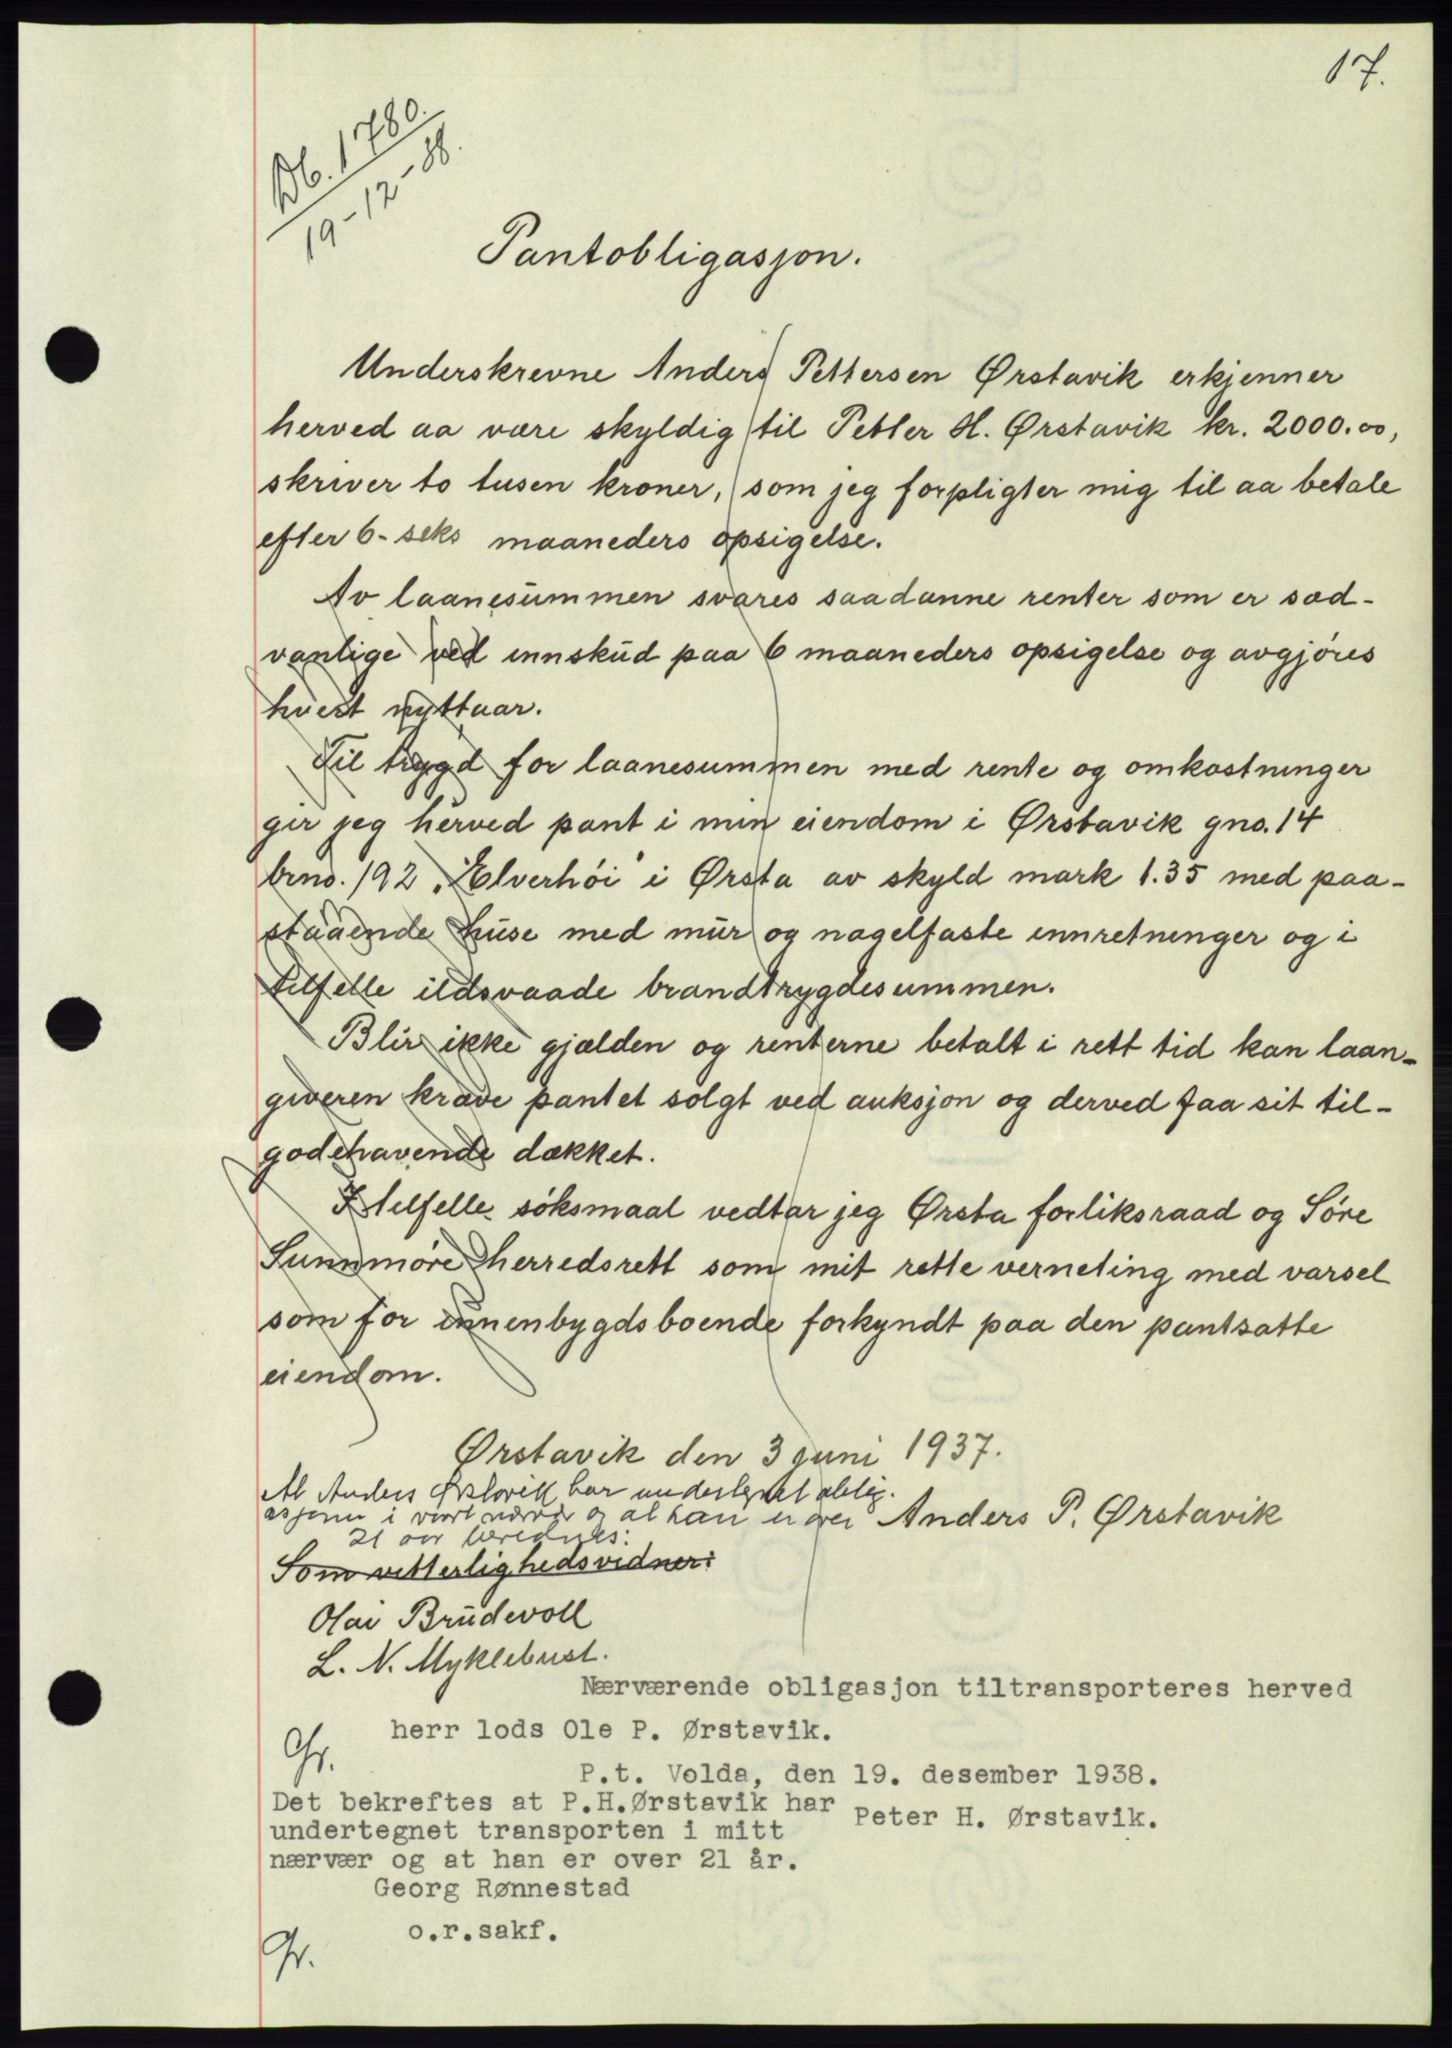 17.
Db. 1780.
19-12-38.
Pantobligasjon.
Underskrevne Anders Pettersen Ørstavik erkjenner
herved aa være skyldig til Petter H. Ørstavik kr. 2000.00,
skriver to tusen kroner, som jeg forpligter mig til aa betale
efter 6- seks maaneders opsigelse.
Av laanesummen svares saadanne renter som er sæd-
vanlige ved innskud paa 6 maaneders opsigelse og avgjöres
hvert nyttaar.
Til trygd for laanesummen med rente og omkostninger
gir jeg herved pant i min eiendom i Ørstavik gno. 14
brno. 192 "Elverhöi" i Ørsta av skyld mark 1.35 med paa-
staaende huse med mur og nagelfaste innretninger og i
tilfelle ildsvaade brandtrygdesummen.
Blir ikke gjælden og renterne betalt i rett tid kan laan-
giveren kræve pantet solgt ved auksjon og derved faa sit til-
godehavende dækket.
I tilfelle söksmaal vedtar jeg Ørsta forliksraad og Söre
Sunnmöre herredsrett som mit rette verneting med varsel
som for innenbygdsboende forkyndt paa den pantsatte
eiendom.
Ørstavik den 3 juni 1937.
At Anders Ørstavik har undertegnet oblig-
asjonen i vårt nærvær og at han er over
21 aar bevidnes:
Anders P. Ørstavik
Som vitterlighedsvidner:
Olai Brudevoll
L. N. Myklebust.
Nærværende obligasjon tiltransporteres herved
herr lods Ole P. Ørstavik.
Gr.
P.t. Volda, den 19. desember 1938.
Det bekreftes at P.H.Ørstavik har
Peter H. Ørstavik.
undertegnet transporten i mitt
nærvær og at han er over 21 år.
Georg Rønnestad
o.r.sakf.
Gr.